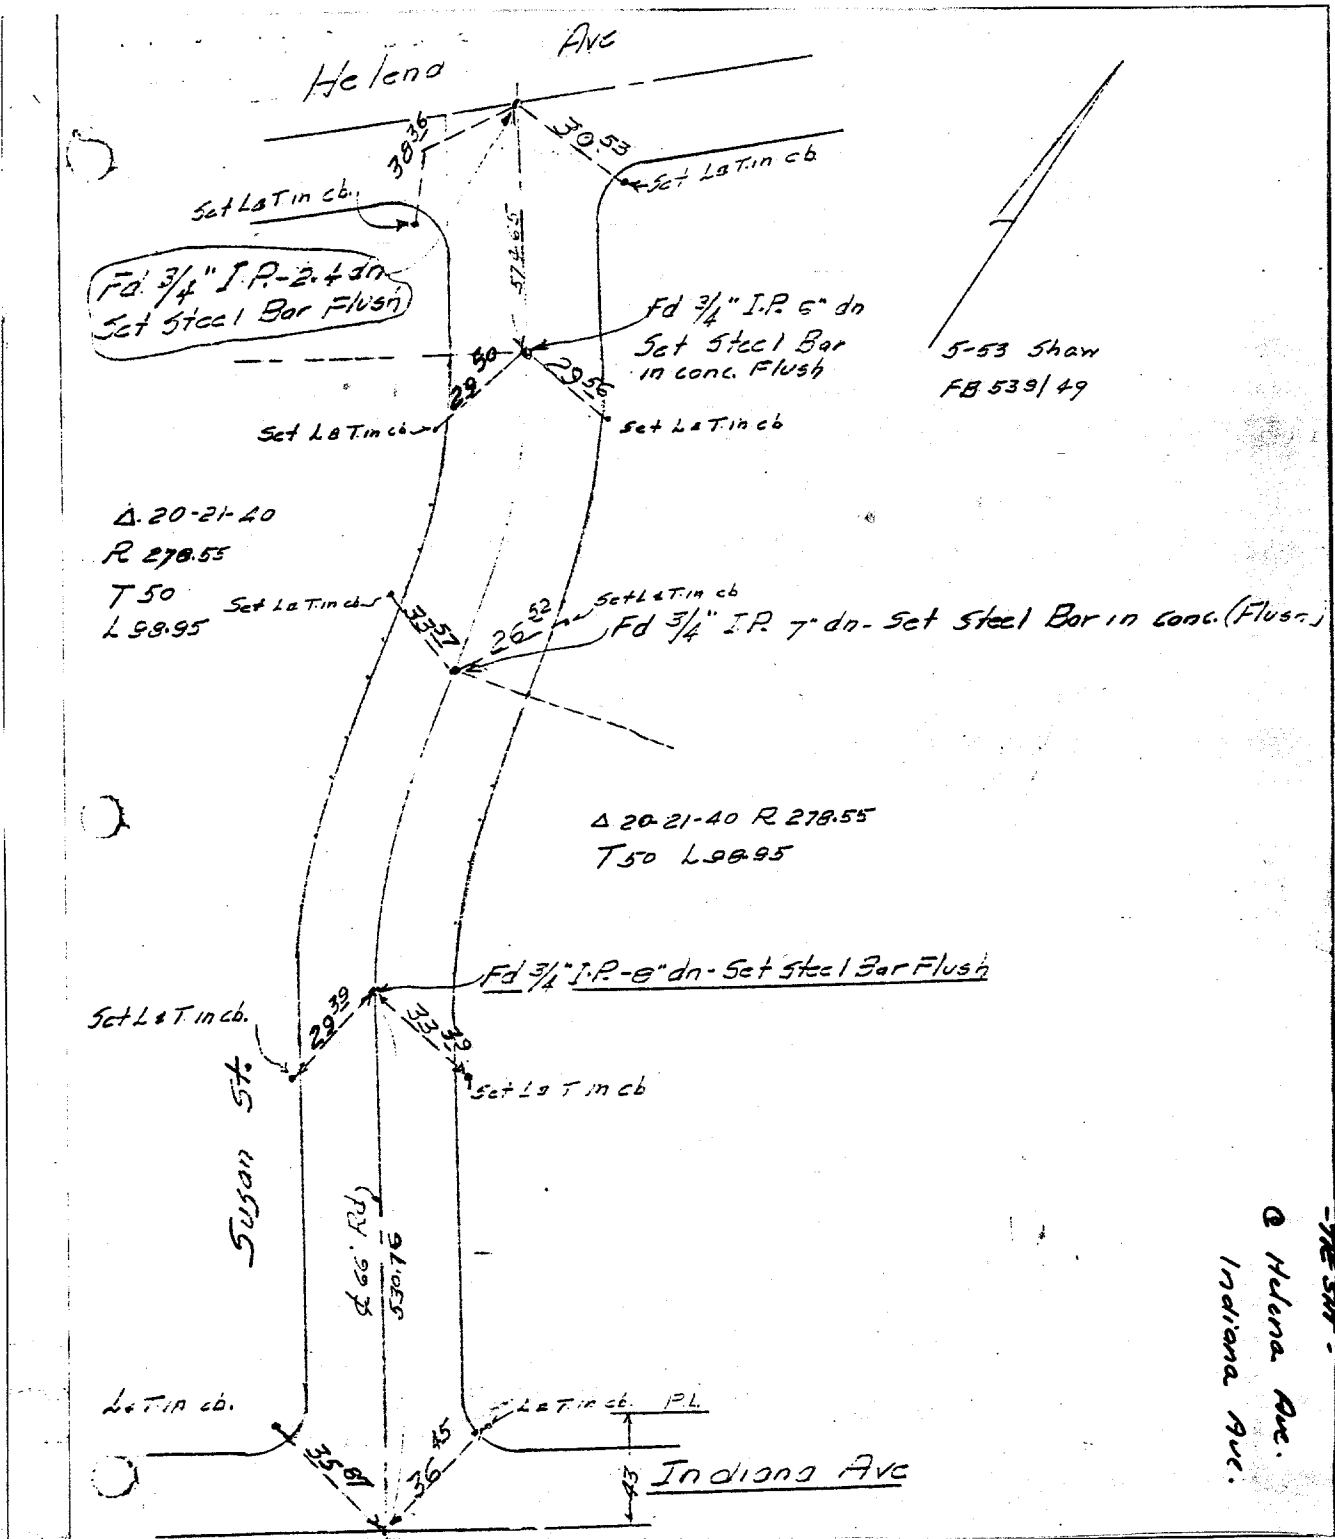 Helena Ave
38.36
30.53
Set L&T in cb.
Set L&T in cb
574.65
Fd 3/4" I.P.-2.4 dn
Set Steel Bar Flush
Fd 3/4" I.P. 6" dn
Set Steel Bar
in conc. Flush
5-53 Shaw
FB 539/49
29.50
29.56
Set L&T in cb
Set L&T in cb
Δ 20-21-40
R 278.55
T 50
L 98.95
Set L&T in cb
33.57
26.52
Set L&T in cb
Fd 3/4" I.P. 7" dn - Set Steel Bar in conc. (Flush)
Δ 20-21-40 R 278.55
T 50 L 98.95
Fd 3/4" I.P.-8" dn - Set Steel Bar Flush
Set L&T in cb.
29.39
33.39
Set L&T in cb
Susan St.
530.76
L&T in cb.
L&T in cb. P.L.
35.87
36.45
43
Indiana Ave
@ Helena Ave.
Indiana Ave.